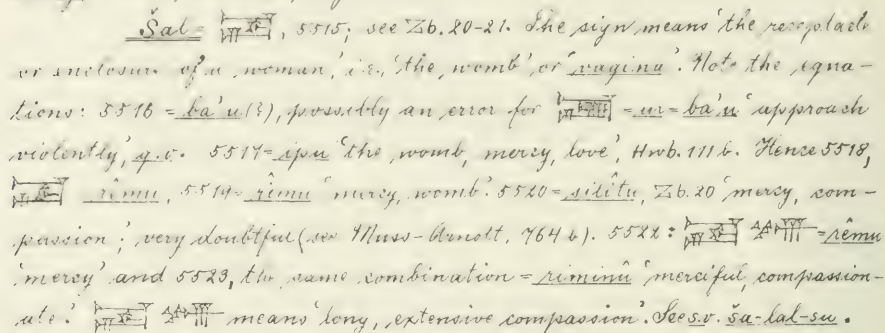 Šal = , 5515; see Zb. 20-21. The sign means 'the receptacle
or enclosure of a woman', i.e., 'the womb' or 'vagina'. Note the equa-
tions: 5516 = ba'u (?), possibly an error for = ur = ba'u 'approach
violently', q.v. 5517 = ipu 'the womb, mercy, love', Hwb. 111 b. Hence 5518,
rêmu, 5519 = rîmu 'mercy, womb'. 5520 = silîtu, Zb. 20 'mercy, com-
passion'; very doubtful (see Muss-Arnolt, 764 b). 5522: = rêmu
'mercy' and 5523, the same combination = riminû 'merciful, compassion-
ate'. means 'long, extensive compassion'. See s.v. ša-lal-su.